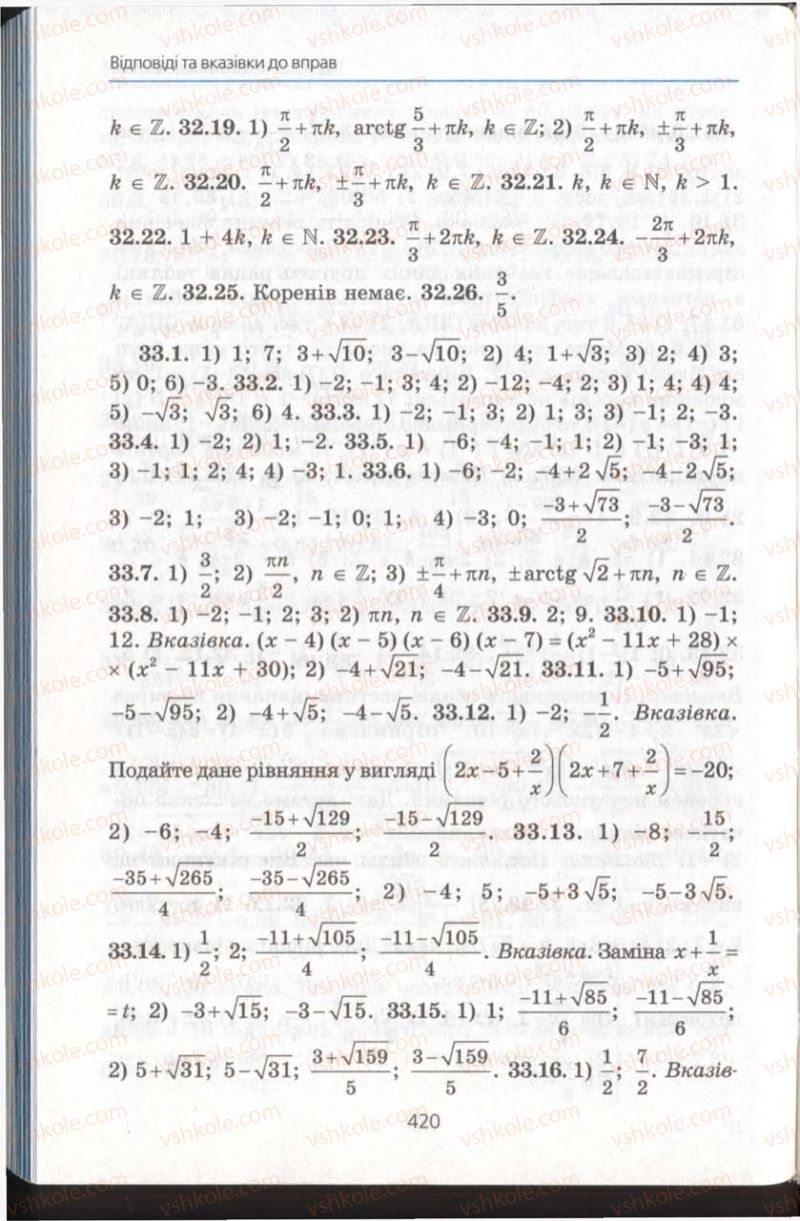 Відповіді та вказівки до вправ
k ∈ ℤ. 32.19. 1) π/2 + πk, arctg 5/3 + πk, k ∈ ℤ; 2) π/2 + πk, ±π/3 + πk,
k ∈ ℤ. 32.20. π/2 + πk, ±π/3 + πk, k ∈ ℤ. 32.21. k, k ∈ ℕ, k > 1.
32.22. 1 + 4k, k ∈ ℕ. 32.23. π/3 + 2πk, k ∈ ℤ. 32.24. −2π/3 + 2πk,
k ∈ ℤ. 32.25. Коренів немає. 32.26. 3/5.
33.1. 1) 1; 7; 3+√10; 3−√10; 2) 4; 1+√3; 3) 2; 4) 3;
5) 0; 6) −3. 33.2. 1) −2; −1; 3; 4; 2) −12; −4; 2; 3) 1; 4; 4) 4;
5) −√3; √3; 6) 4. 33.3. 1) −2; −1; 3; 2) 1; 3; 3) −1; 2; −3.
33.4. 1) −2; 2) 1; −2. 33.5. 1) −6; −4; −1; 1; 2) −1; −3; 1;
3) −1; 1; 2; 4; 4) −3; 1. 33.6, 1) −6; −2; −4+2√5; −4−2√5;
3) −2; 1; 3) −2; −1; 0; 1; 4) −3; 0; (−3+√73)/2; (−3−√73)/2.
33.7. 1) 3/2; 2) πn/2, n ∈ ℤ; 3) ±π/4 + πn, ±arctg √2 + πn, n ∈ ℤ.
33.8. 1) −2; −1; 2; 3; 2) πn, n ∈ ℤ. 33.9. 2; 9. 33.10. 1) −1;
12. Вказівка. (x − 4) (x − 5) (x − 6) (x − 7) = (x² − 11x + 28) ×
× (x² − 11x + 30); 2) −4+√21; −4−√21. 33.11. 1) −5+√95;
−5−√95; 2) −4+√5; −4−√5. 33.12. 1) −2; −1/2. Вказівка.
Подайте дане рівняння у вигляді (2x−5+2/x)(2x+7+2/x) = −20;
2) −6; −4; (−15+√129)/2; (−15−√129)/2. 33.13. 1) −8; −15/2;
(−35+√265)/4; (−35−√265)/4; 2) −4; 5; −5+3√5; −5−3√5.
33.14. 1) 1/2; 2; (−11+√105)/4; (−11−√105)/4. Вказівка. Заміна x+1/x =
= t; 2) −3+√15; −3−√15. 33.15. 1) 1; (−11+√85)/6; (−11−√85)/6;
2) 5+√31; 5−√31; (3+√159)/5; (3−√159)/5. 33.16. 1) 1/2; 7/2. Вказів-
420